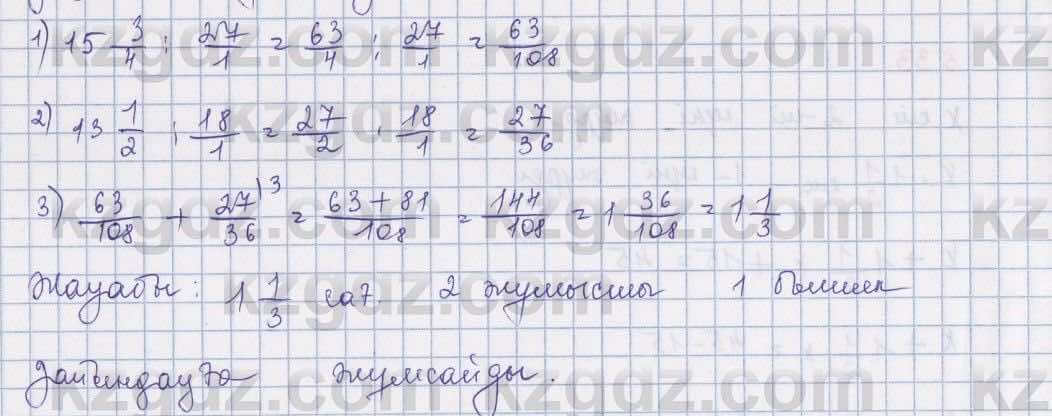 1) 15 3/4 : 27/1 = 63/4 : 27/1 = 63/108
2) 13 1/2 : 18/1 = 27/2 : 18/1 = 27/36
3) 63/108 + 27/36 )3 = 63+81/108 = 144/108 = 1 36/108 = 1 1/3
Жауабы: 1 1/3 сағ. 2 жұмысшы 1 бөлшек
дайындауға жұмсайды.
kzgdz.com